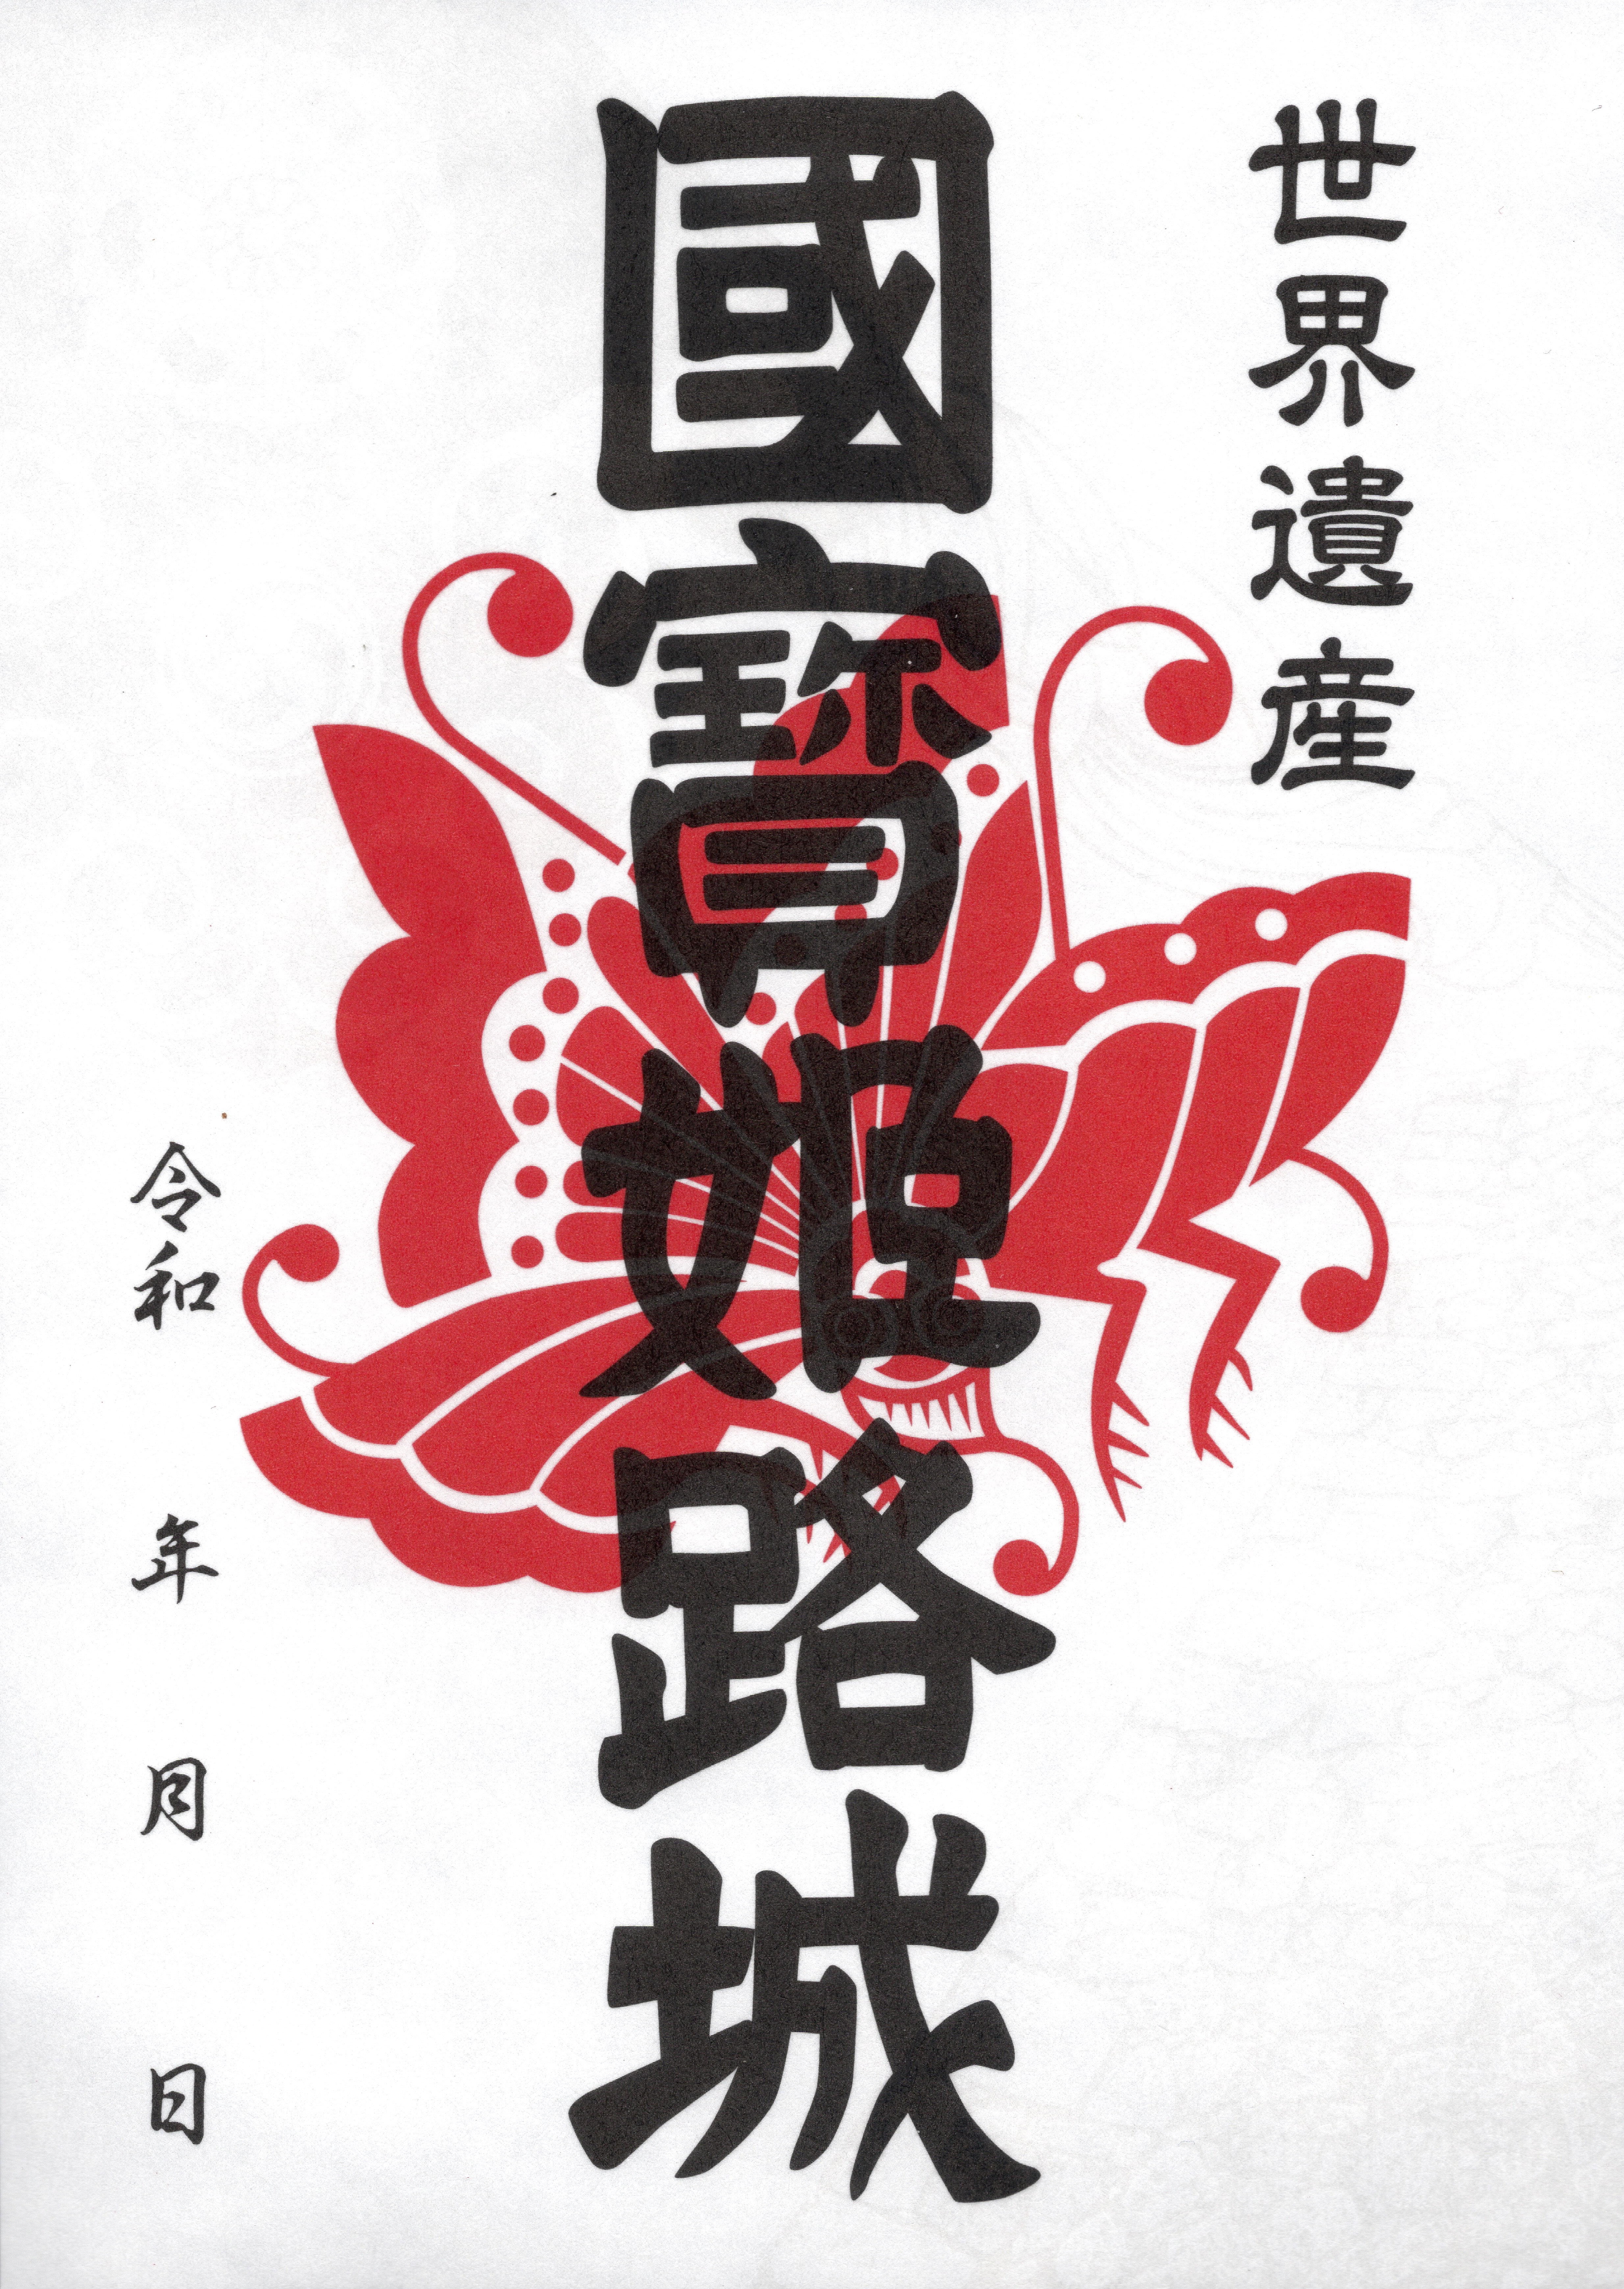 世界遺産
國寳姫路城
令和　年　月　日